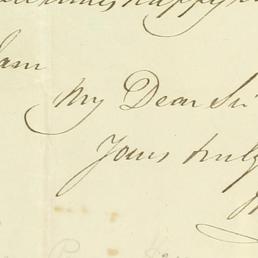 happy
I am
My Dear Sir
Yours truly